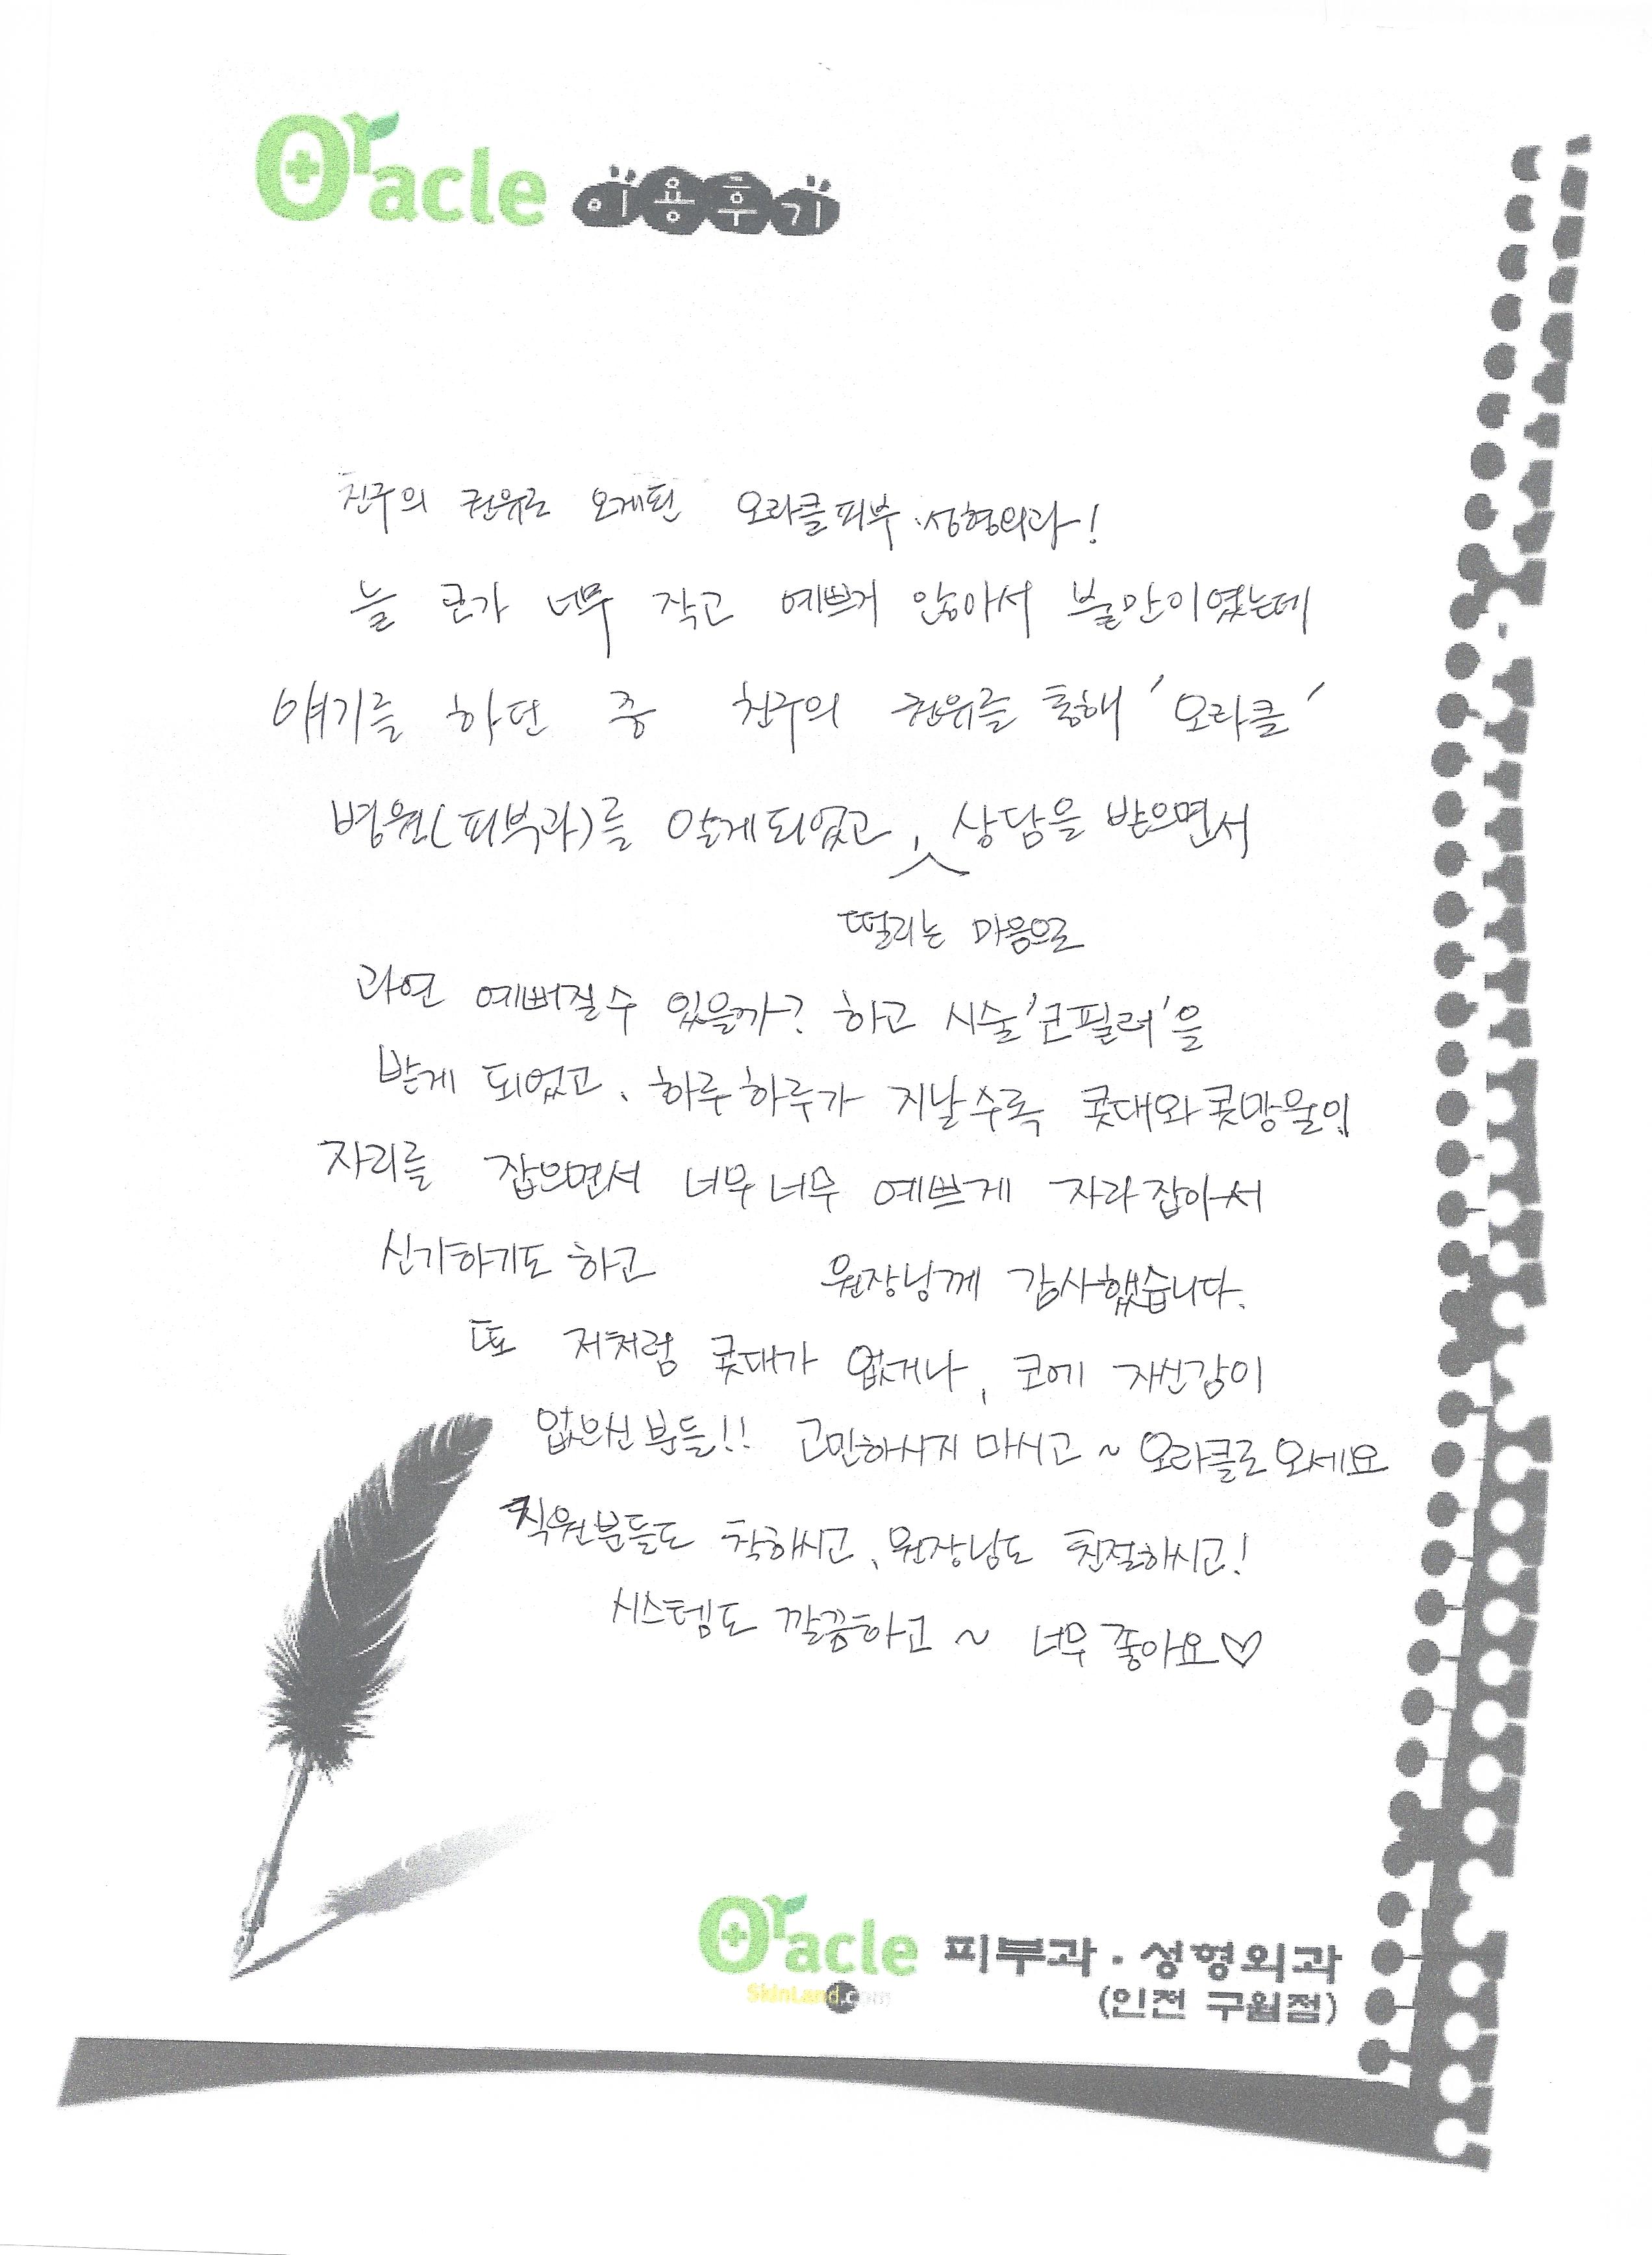 Oracle 이용후기
친구의 권유로 오게된 오라클피부.성형외과!
늘 코가 너무 작고 예쁘게 않아서 불만이였는데
얘기를 하던 중 친구의 권유를 통해 '오라클'
병원(피부과)를 알게되었고, 상담을 받으면서
떨리는 마음으로
과연 예뻐질수 있을까? 하고 시술'코필러'을
받게 되었고. 하루하루가 지날수록 콧대와콧망울이
자리를 잡으면서 너무너무 예쁘게 자라잡아서
신기하기도 하고 원장님께 감사했습니다.
또 저처럼 콧대가 없거나, 코에 자신감이
없으신분들!! 고민하시지 마시고~ 오라클로오세요
직원분들도 착하시고, 원장님도 친절하시고!
시스템도 깔끔하고~ 너무 좋아요♡
Oracle 피부과·성형외과
SkinLand.com (인천 구월점)